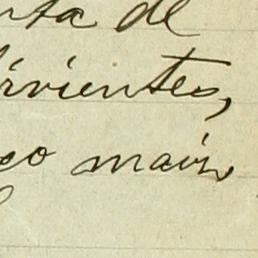 nta de
irvientes,
co mais